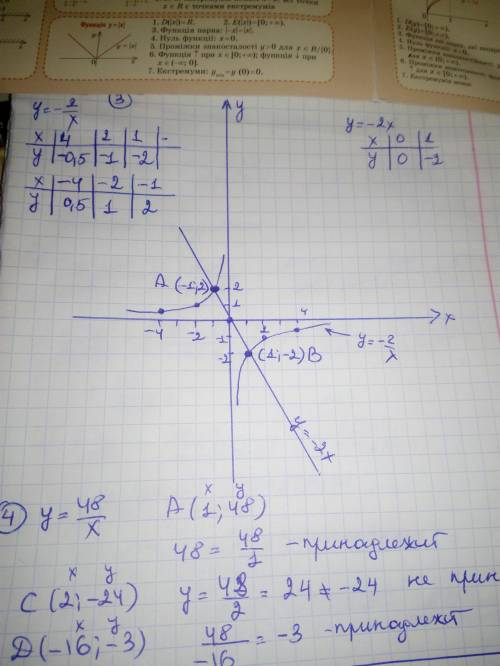 Функція y=|x|
1. D(y)=R. 2. E(y)=[0; +∞).
3. Функція парна: |-x|=|x|.
4. Нуль функції: x=0.
5. Проміжки знакосталості y>0 для x∈R/{0}.
6. Функція ↑ при x∈[0; +∞); функція ↓ при
x∈(-∞; 0].
7. Екстремуми: y min = y (0)=0.
3
y = -2/x
x 4 2 1
y -0,5 -1 -2
x -4 -2 -1
y 0,5 1 2
y
y = -2x
x 0 1
y 0 -2
A (-1; 2)
2
1
-4 -2 2 4 x
-1
-2
(1; -2) B
y = -2/x
y = -2x
4 y = 48/x
x y
A (1; 48)
48 = 48/1 - принадлежит
x y
C (2; -24)
y = 48/2 = 24 ≠ -24 не прин
x y
D (-16; -3)
48/-16 = -3 - принадлежит